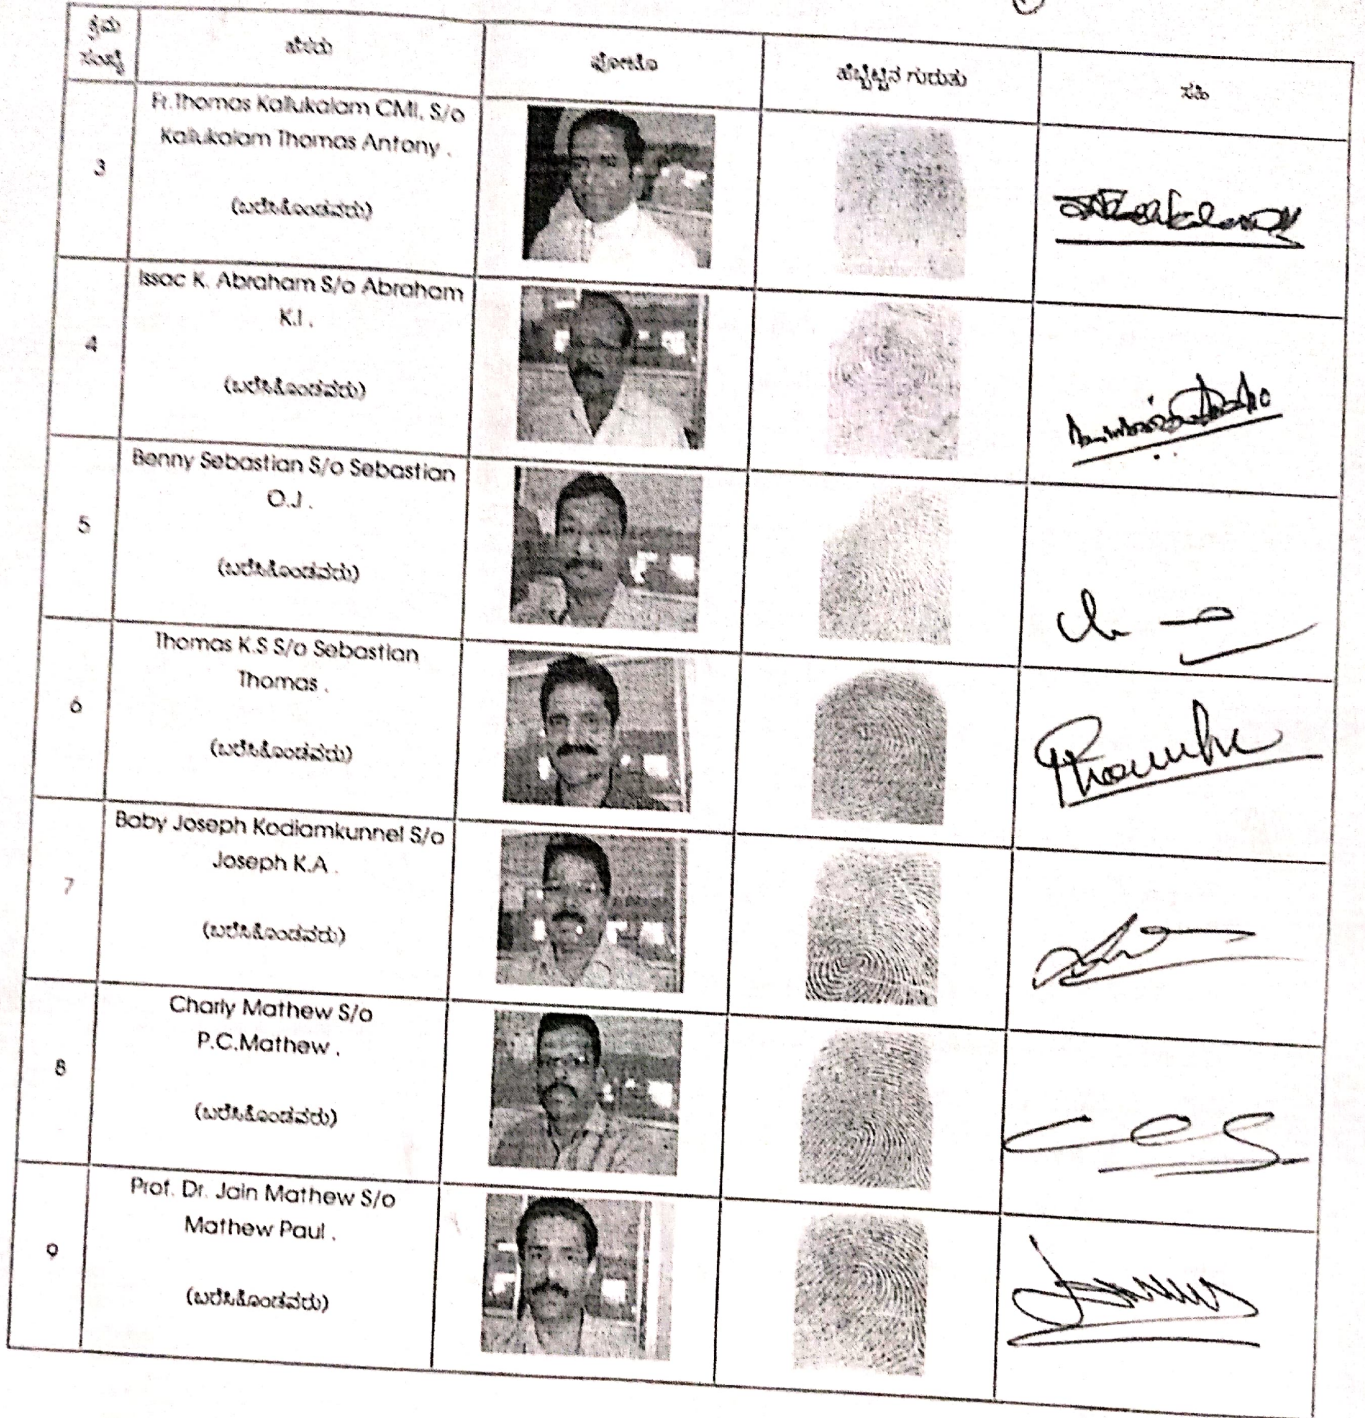 ಕ್ರಮ
ಸಂಖ್ಯೆ
ಹೆಸರು
ಫೋಟೊ
ಹೆಬ್ಬೆಟ್ಟಿನ ಗುರುತು
ಸಹಿ
3
Fr.Thomas Kallukalam CMI, S/o
Kallukalam Thomas Antony .
(ಬರೆಸಿಕೊಂಡವರು)
4
Issac K. Abraham S/o Abraham
K.I .
(ಬರೆಸಿಕೊಂಡವರು)
5
Benny Sebastian S/o Sebastian
O.J .
(ಬರೆಸಿಕೊಂಡವರು)
6
Thomas K.S S/o Sebastian
Thomas .
(ಬರೆಸಿಕೊಂಡವರು)
7
Baby Joseph Kodiamkunnel S/o
Joseph K.A .
(ಬರೆಸಿಕೊಂಡವರು)
8
Charly Mathew S/o
P.C.Mathew .
(ಬರೆಸಿಕೊಂಡವರು)
9
Prof. Dr. Jain Mathew S/o
Mathew Paul .
(ಬರೆಸಿಕೊಂಡವರು)